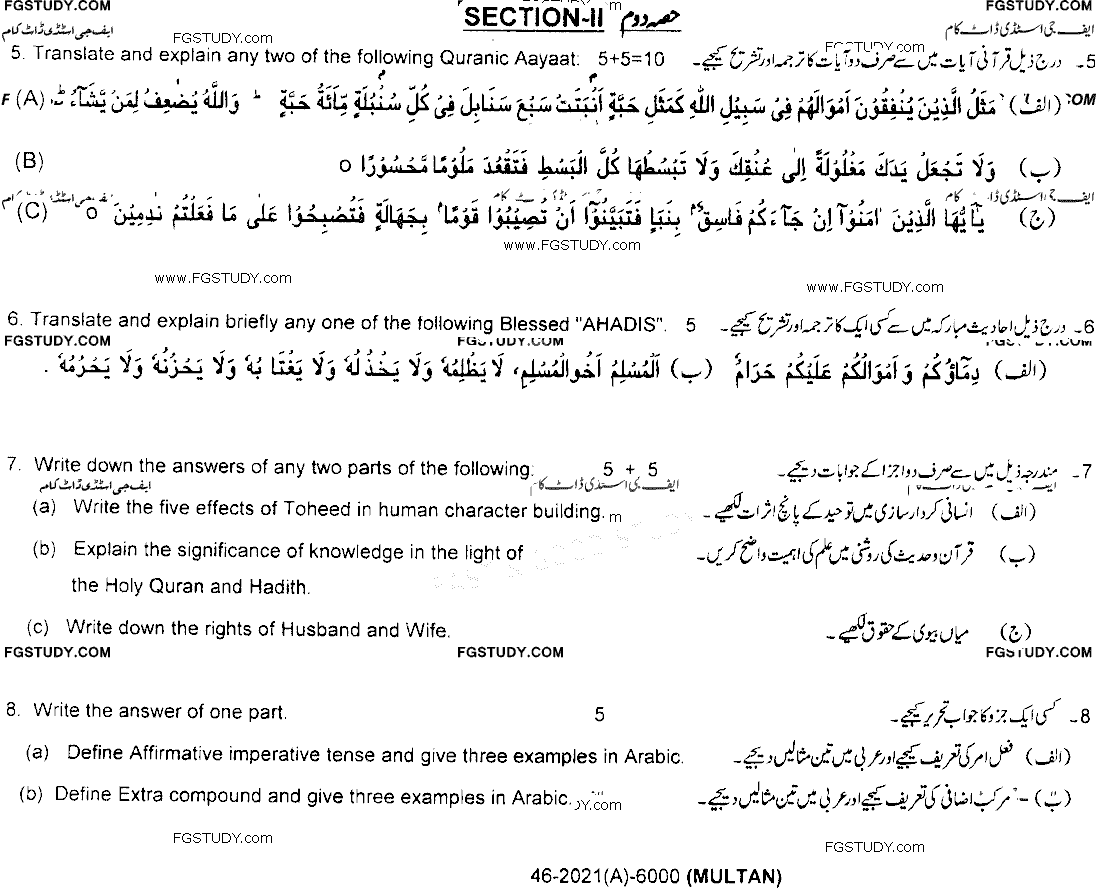 FGSTUDY.COM SECTION-II حصہ دوم FGSTUDY.COM
ایف جی اسٹڈی ڈاٹ کام FGSTUDY.com FGSTUDY.com ایف جی اسٹڈی ڈاٹ کام
5. Translate and explain any two of the following Quranic Aayaat: 5+5=10 5۔ درج ذیل قرآنی آیات میں سے صرف دو آیات کا ترجمہ اور تشریح کیجیے۔
(A) (الف) مَثَلُ الَّذِيْنَ يُنْفِقُوْنَ اَمْوَالَهُمْ فِيْ سَبِيْلِ اللّٰهِ كَمَثَلِ حَبَّةٍ اَنْبَتَتْ سَبْعَ سَنَابِلَ فِيْ كُلِّ سُنْبُلَةٍ مِّائَةُ حَبَّةٍ ط وَاللّٰهُ يُضٰعِفُ لِمَنْ يَّشَآءُ ط COM
(B) (ب) وَلَا تَجْعَلْ يَدَكَ مَغْلُوْلَةً اِلٰى عُنُقِكَ وَلَا تَبْسُطْهَا كُلَّ الْبَسْطِ فَتَقْعُدَ مَلُوْمًا مَّحْسُوْرًا o
ایف جی اسٹڈی ڈاٹ کام
(C) (ج) يٰٓاَيُّهَا الَّذِيْنَ اٰمَنُوْٓا اِنْ جَآءَكُمْ فَاسِقٌۢ بِنَبَاٍ فَتَبَيَّنُوْٓا اَنْ تُصِيْبُوْا قَوْمًاۢ بِجَهَالَةٍ فَتُصْبِحُوْا عَلٰى مَا فَعَلْتُمْ نٰدِمِيْنَ o
www.FGSTUDY.com
www.FGSTUDY.com www.FGSTUDY.com
6. Translate and explain briefly any one of the following Blessed "AHADIS". 5 6۔ درج ذیل احادیث مبارکہ میں سے کسی ایک کا ترجمہ اور تشریح کیجیے۔
FGSTUDY.COM FGSTUDY.COM FGSTUDY.COM
(الف) دِمَاؤُكُمْ وَ اَمْوَالُكُمْ عَلَيْكُمْ حَرَامٌ (ب) اَلْمُسْلِمُ اَخُوالْمُسْلِمِ، لَا يَظْلِمُهٗ وَلَا يَخْذُلُهٗ وَلَا يَغْتَا بُهٗ وَلَا يَحْزُنُهٗ وَلَا يَحْرُمُهٗ .
7. Write down the answers of any two parts of the following: 5 + 5 7۔ مندرجہ ذیل میں سے صرف دو اجزا کے جوابات دیجیے۔
ایف جی اسٹڈی ڈاٹ کام ایف جی اسٹڈی ڈاٹ کام
(a) Write the five effects of Toheed in human character building. m (الف) انسانی کردار سازی میں توحید کے پانچ اثرات لکھیے۔
(b) Explain the significance of knowledge in the light of (ب) قرآن و حدیث کی روشنی میں علم کی اہمیت واضح کریں۔
the Holy Quran and Hadith.
(c) Write down the rights of Husband and Wife. (ج) میاں بیوی کے حقوق لکھیے۔
FGSTUDY.COM FGSTUDY.COM FGSTUDY.COM
8. Write the answer of one part. 5 8۔ کسی ایک جزو کا جواب تحریر کیجیے۔
(a) Define Affirmative imperative tense and give three examples in Arabic. (الف) فعل امر کی تعریف کیجیے اور عربی میں تین مثالیں دیجیے۔
(b) Define Extra compound and give three examples in Arabic. DY.com (ب) مرکب اضافی کی تعریف کیجیے اور عربی میں تین مثالیں دیجیے۔
FGSTUDY.com FGSTUDY.com
46-2021(A)-6000 (MULTAN)